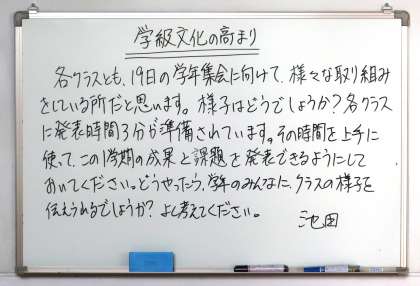 学級文化の高まり
各クラスとも、19日の学年集会に向けて、様々な取り組み
をしている所だと思います。様子はどうでしょうか？各クラス
に発表時間3分が準備されています。その時間を上手に
使って、この1学期の成果と課題を発表できるようにして
おいてください。どうやったら、学年のみんなに、クラスの様子を
伝えられるでしょうか？よく考えてください。
池田